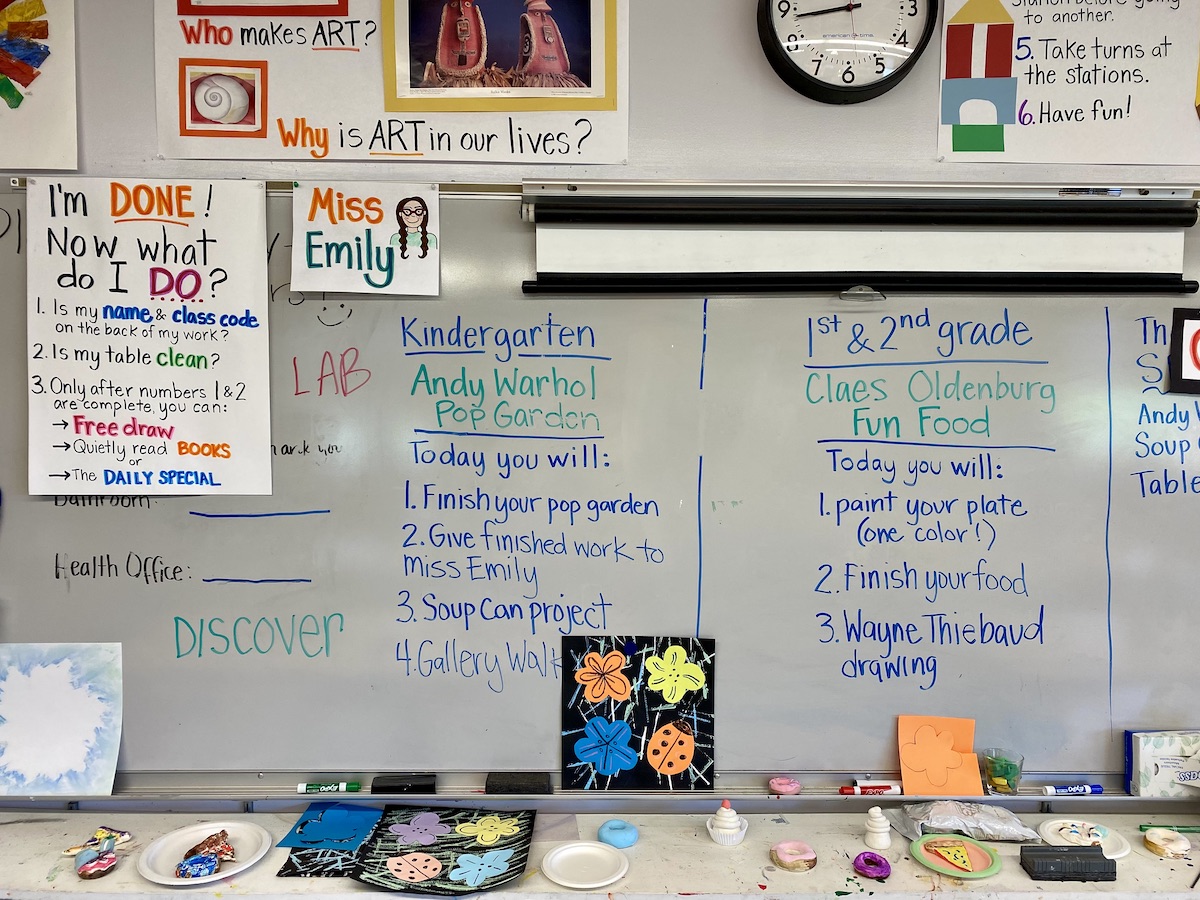 Who makes ART?
Why is ART in our lives?
to another.
5. Take turns at
the stations.
6. Have fun!
9
8
7
6
5
4
3
I'm DONE!
Now what
do I DO?
1. Is my name & class code
on the back of my work?
2. Is my table clean?
3. Only after numbers 1 & 2
are complete, you can:
→ Free draw
→ Quietly read BOOKS
or
→ The DAILY SPECIAL
Miss
Emily
LAB
Bathroom:
Health Office:
DISCOVER
Kindergarten
Andy Warhol
Pop Garden
Today you will:
1. Finish your pop garden
2. Give finished work to
miss Emily
3. Soup Can project
4. Gallery Walk
1st & 2nd grade
Claes Oldenburg
Fun Food
Today you will:
1. paint your plate
(one color!)
2. Finish your food
3. Wayne Thiebaud
drawing
Th
S
Andy
Soup
Table
EXPO